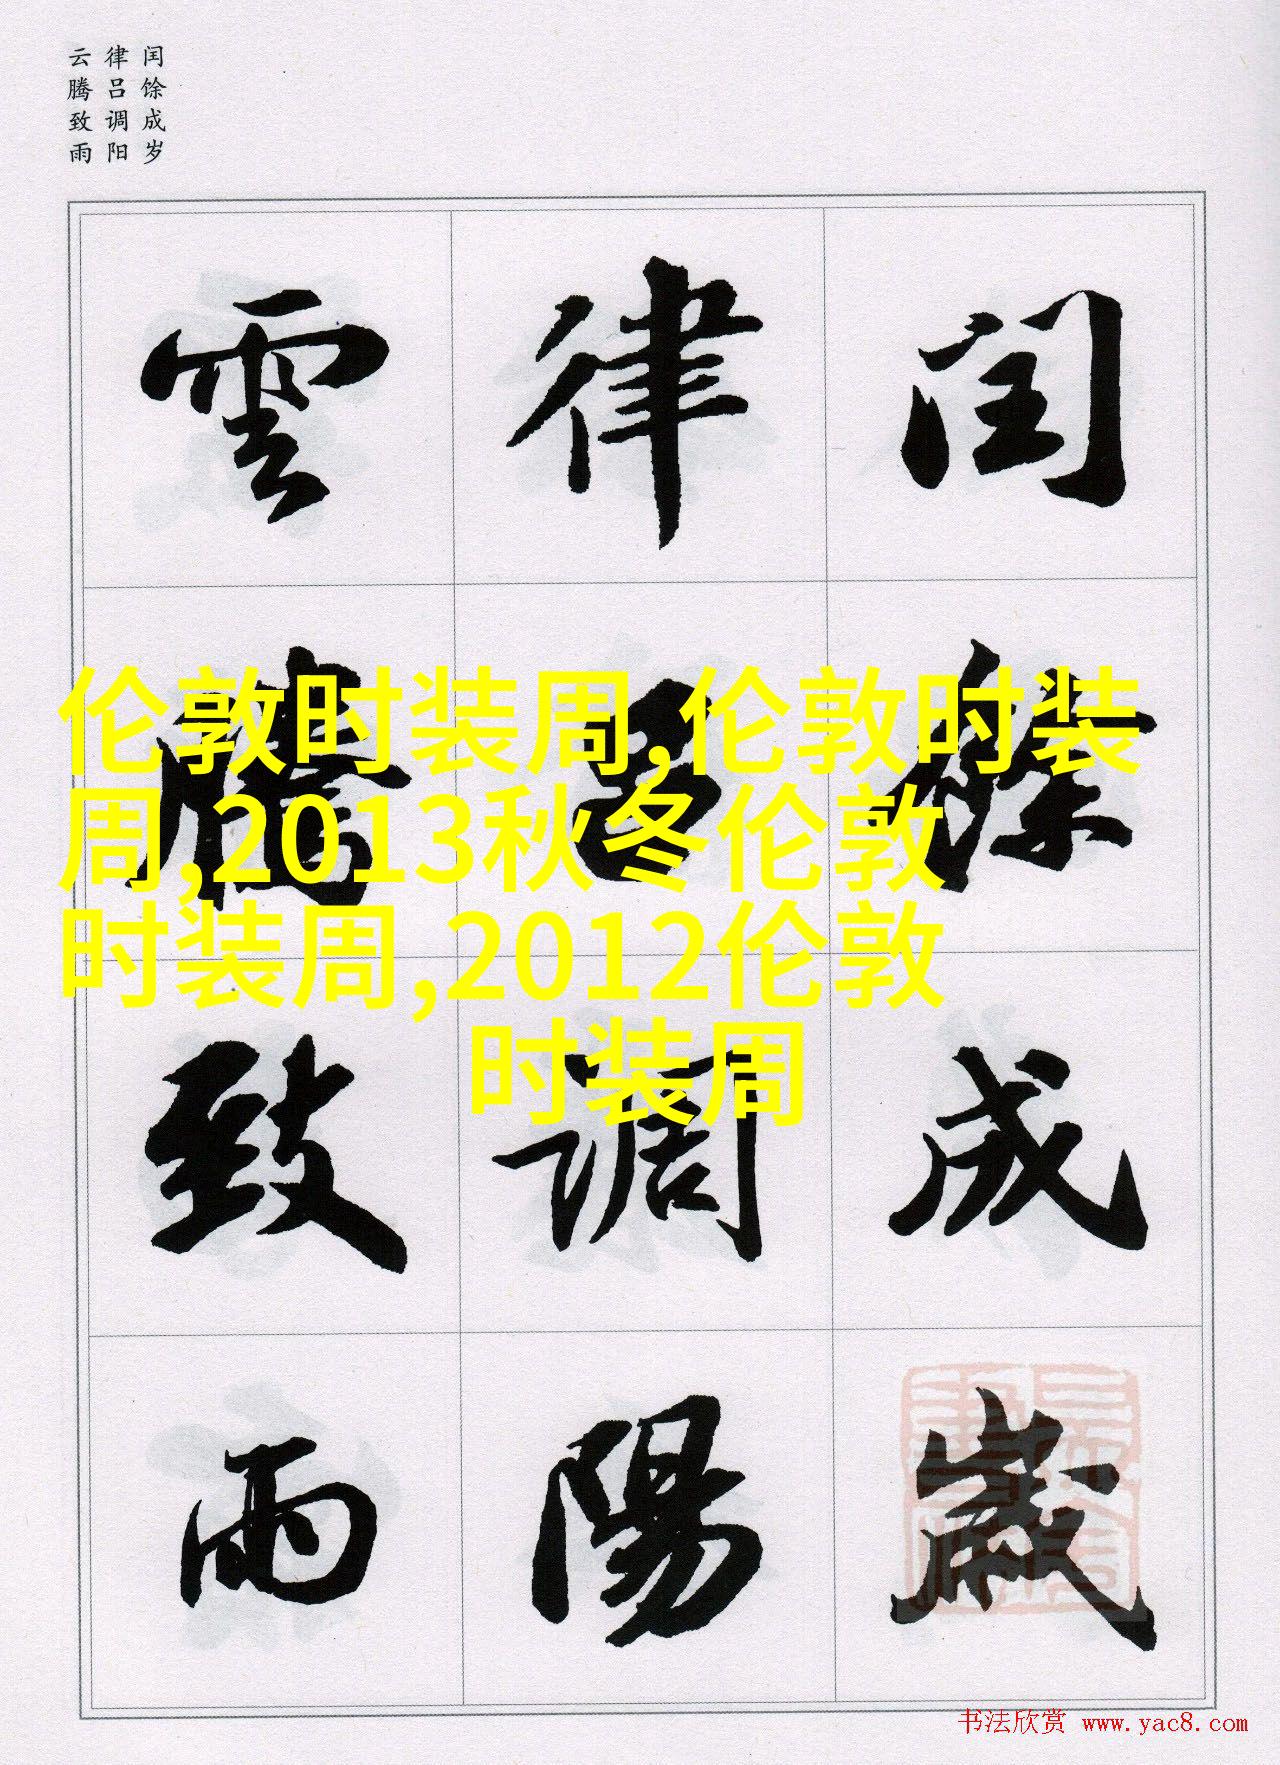 闰馀成岁
律吕调阳
云腾致雨
閏餘成歲
律吕調陽
雲騰致雨
伦敦时装周,伦敦时装
周,2013秋冬伦敦
时装周,2012伦敦
时装周
书法欣赏 www.yac8.com